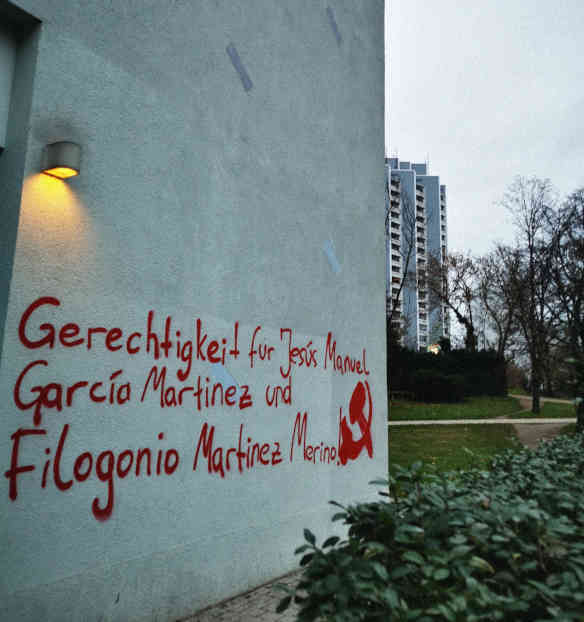 Gerechtigkeit für Jesús Manuel
García Martinez und
Filogonio Martinez Merino!